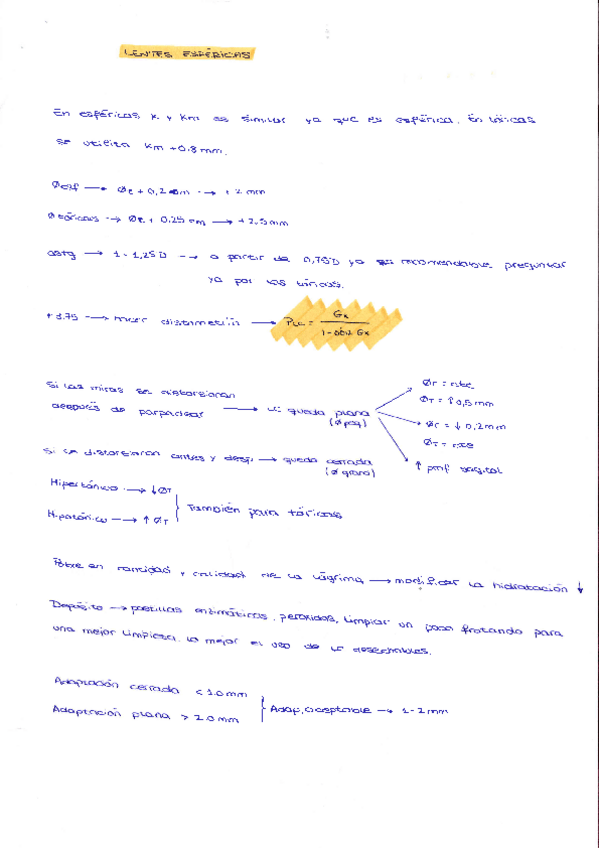 LENTES ESFÉRICAS
En esféricas, K y Km es similar ya que es esférica. En tóricas
se utiliza Km + 0.8 mm.
Øesf → Øt + 0,2 cm → + 2 mm
Ø tóricas → Øt + 0.25 cm → + 2.5 mm
astg → 1 - 1,25 D → a partir de 0,75D ya es recomendable preguntar
ya por las tóricas.
+ 3.75 → mirar distometría → PLC = Gx / 1 - dbv Gx
Si las miras se distorsionan
después de parpadear → LC queda plana
(Ø peq)
Ør = cte
ØT = ↑ 0,5 mm
Ør = ↓ 0,2 mm
ØT = cte
↑ prof sagital
Si se distorsionan antes y desp → queda cerrada
(Ø grand)
Hipertónico → ↓ ØT
Hipotónico → ↑ ØT
También para tóricas
Pobre en cantidad y calidad de la lágrima → modificar la hidratación ↓
Depósito → pastillas enzimáticas, peroxidos, limpiar un poco frotando para
una mejor limpieza. Lo mejor el uso de lc desechables.
Adaptación cerrada < 1.0 mm
Adaptación plana > 2.0 mm
Adap. aceptable → 1-2 mm